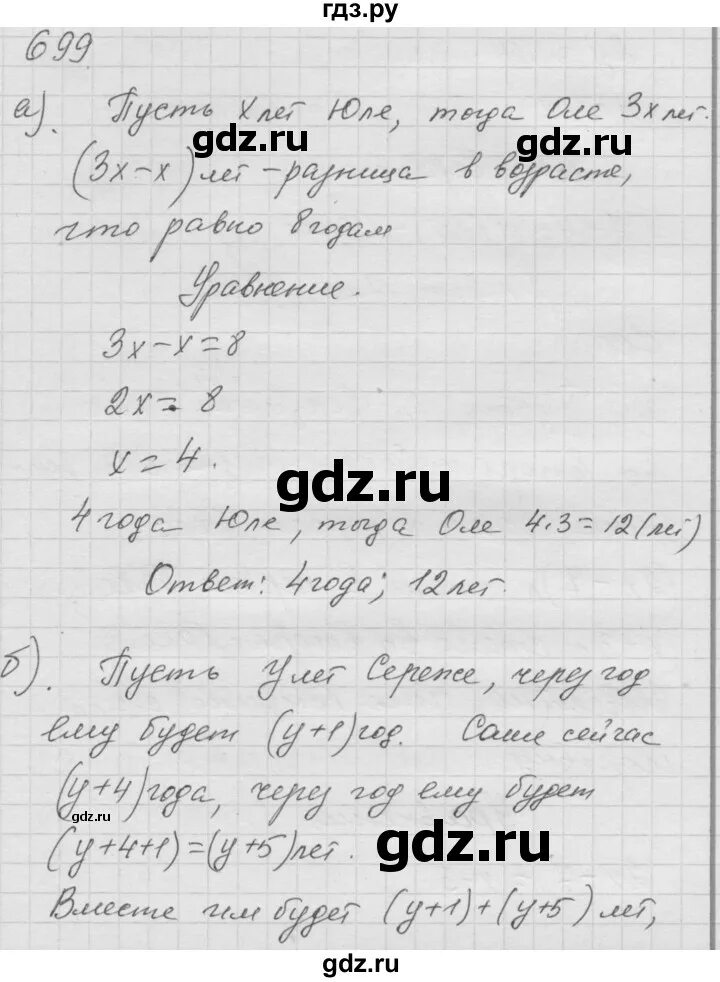 гдз.ру
699
а). Пусть х лет Юле, тогда Оле 3х лет.
gdz.ru gdz.ru
(3х-х) лет - разница в возрасте,
что равно 8 годам
Уравнение.
3х-х=8
gdz.ru
2х= 8
х=4.
gdz.ru
4 года Юле, тогда Оле 4·3=12(лет)
Ответ: 4 года; 12 лет.
б). Пусть у лет Сереже, через год
ему будет (у+1) год. Саше сейчас
(у+4) года, через год ему будет
gdz.ru
gdz.ru
(у+4+1)=(у+5) лет.
Вместе им будет (у+1)+(у+5) лет,
gdz.ru